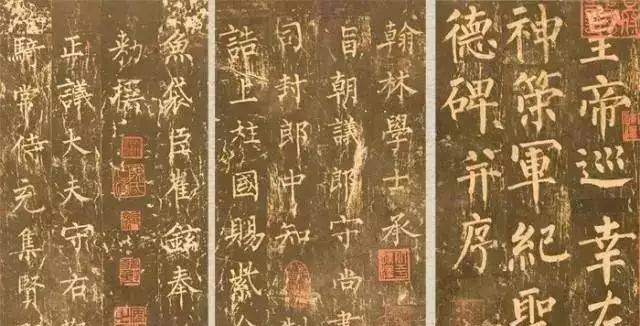 皇帝巡幸左
神策軍紀聖
德碑并序
翰林學士承
旨朝議郎守尚書
司封郎中知制
誥上柱國賜紫金
魚袋臣崔鉉奉
勑撰
正議大夫守右散
騎常侍充集賢